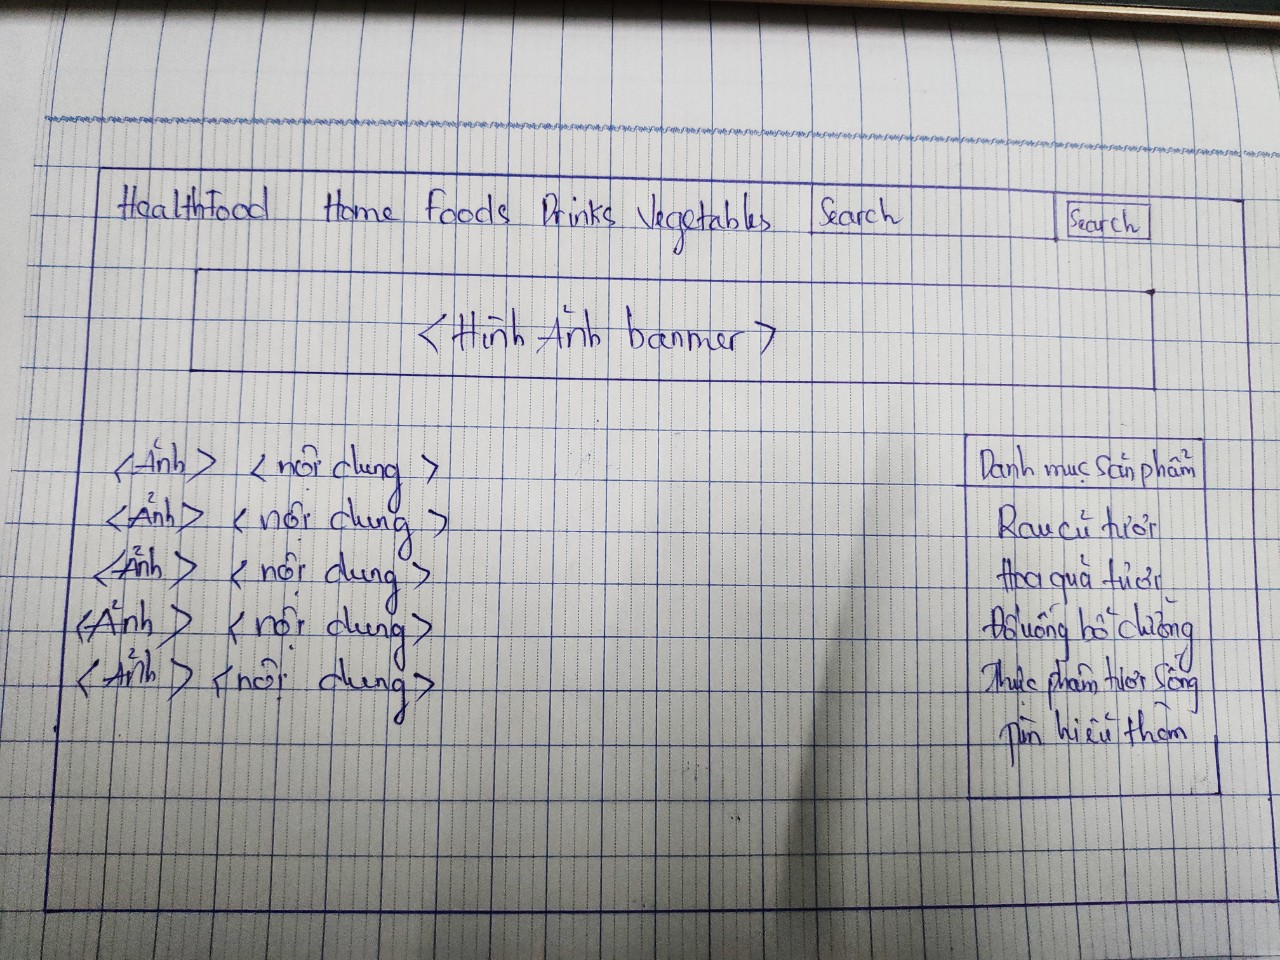 Healthfood Home Foods Drinks Vegetables Search Search
<Hình Ảnh banner>
<Ảnh> <nội dung>
<Ảnh> <nội dung>
<Ảnh> <nội dung>
<Ảnh> <nội dung>
<Ảnh> <nội dung>
Danh mục sản phẩm
Rau củ tươi
Hoa quả tươi
Đồ uống bổ dưỡng
Thực phẩm tươi sống
hiểu thêm